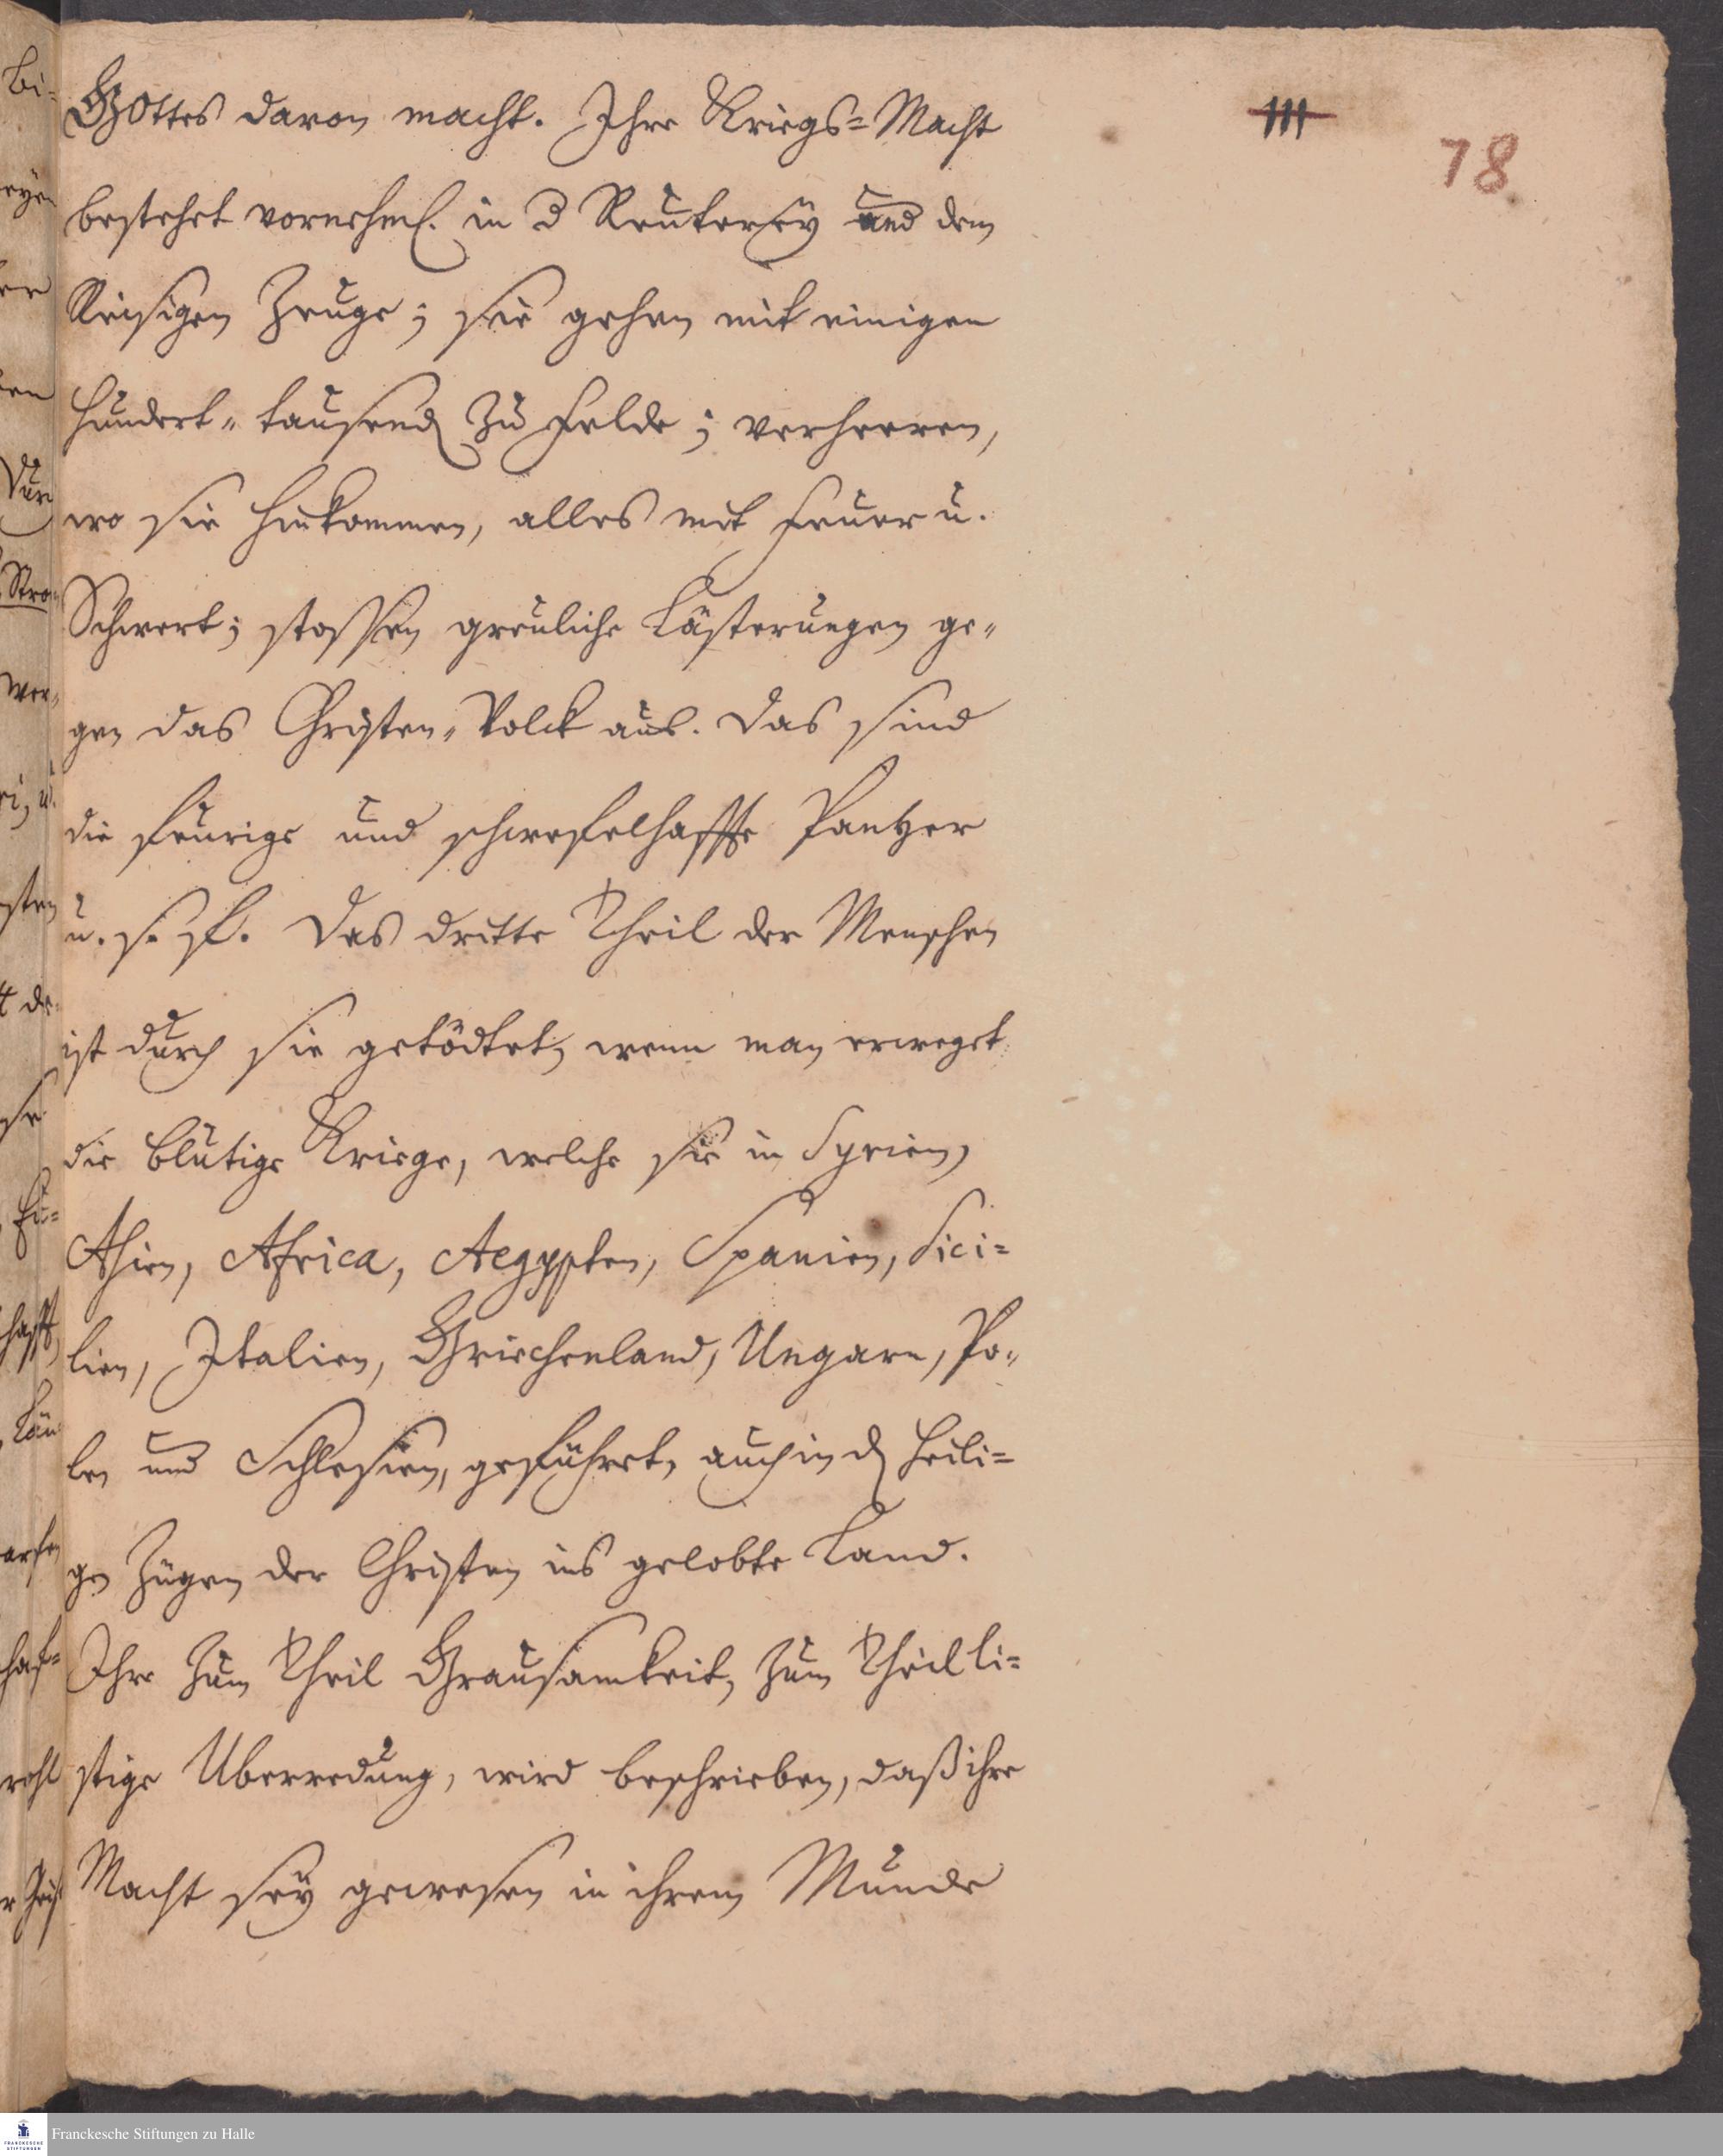 111
78
GOttes davon macht. Ihre Kriegs=Macht
bestehet vornehml. in d Reuterey und dem
Reisigen Zeuge; sie gehen mit einigen
hundert=tausend zu Felde; verheeren,
wo sie hinkommen, alles mit Feuer u.
Schwert; stossen greuliche Lästerungen ge=
gen das Christen=Volck aus. Das sind
die feurige und schwefelhaffte Pantzer
u. s. f. Das dritte Theil der Menschen
ist durch sie getödtet, wenn man erweget
die blutige Kriege, welche sie in Syrien,
Asien, Africa, Aegypten, Spanien, Sici=
lien, Italien, Griechenland, Ungarn, Po=
len und Schlesien, geführet, auch in d Heili=
gen Zügen der Christen ins gelobte Land.
Ihre zum Theil Grausamkeit, zum Theil li=
stige Uberredung, wird beschrieben, daß ihre
Macht sey gewesen in ihrem Munde
Franckesche Stiftungen zu Halle